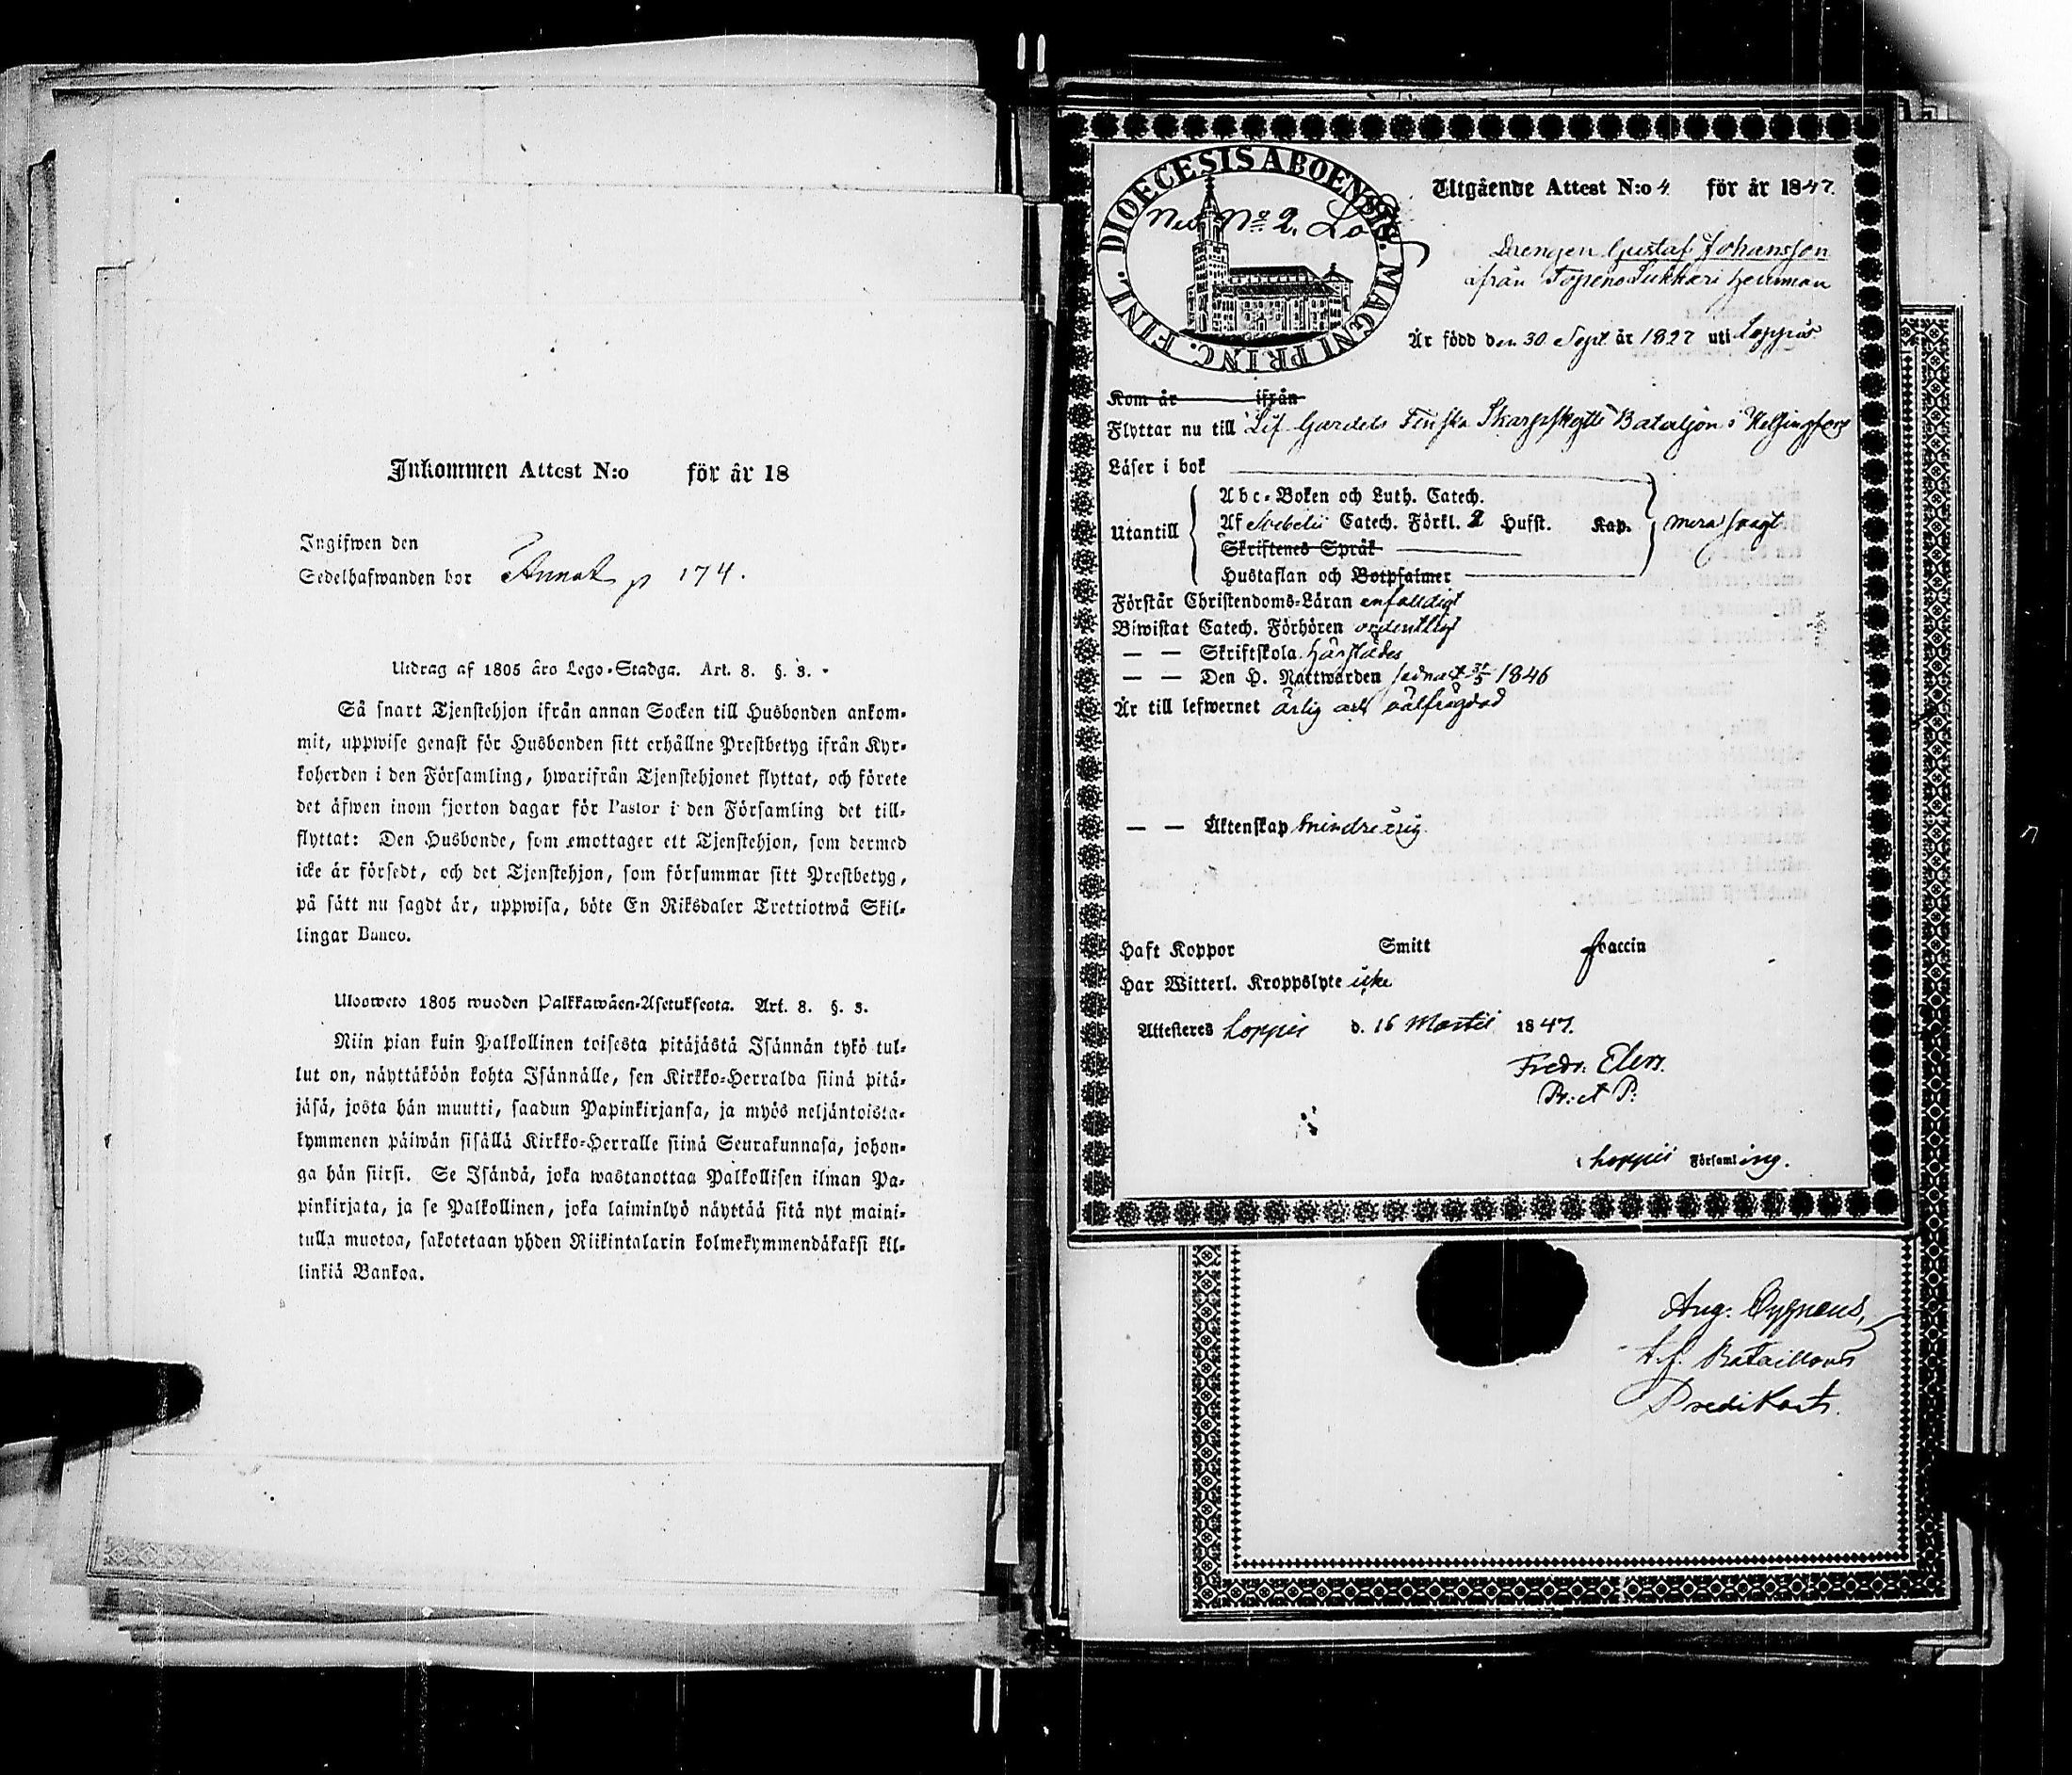 Inkommen Attest N:o för år 18
Ingifwen den
Sedelhafwanden bor p 174.
Utdrag af 1805 års Lego-Stadga. Art. 8. §. 3.
Så snart Tjenstehjon ifrån annan Socken till Husbonden ankom-
mit, uppwise genast för Husbonden sitt erhållne Prestbetyg ifrån Kyr-
koherden i den Församling, hwarifrån Tjenstehjonet flyttat, och förete
det äfwen inom fjorton dagar för Pastor i den Församling det till-
flyttat: Den Husbonde, som emottager ett Tjenstehjon, som dermed
icke är försedt, och det Tjenstehjon, som försummar sitt Prestbetyg,
på sätt nu sagdt är, uppwisa, böte En Riksdaler Trettiotwå Skil-
lingar Banco.
Ulosweto 1805 wuoden Palkkawäen-Asetuksesta. Art. 8. §. 3.
Niin pian kuin Palkollinen toisesta pitäjästä Isännän tykö tul-
lut on, näyttäköön kohta Isännälle, sen Kirkko-Herralda siinä pitä-
jäsä, josta hän muutti, saadun Papinkirjansa, ja myös neljäntoista-
kymmenen päiwän sisällä Kirkko-Herralle siinä Seurakunnasa, johon-
ga hän siirsi. Se Isändä, joka wastanottaa Palkollisen ilman Pa-
pinkirjata, ja se Palkollinen, joka laiminlyö näyttää sitä nyt maini-
tulla muotoa, sakotetaan yhden Riikintalarin kolmekymmendäkaksi kil-
linkiä Bankoa.
DIOECESIS ABOENSIS. MAGNI PRINC. FINL.
No 2.
Utgående Attest N:o 4 för år 1847.
Drengen Gustaf Johansson
ifrån Topeno Sukkari hemman
Är född den 30 Sept. år 1827 uti Loppis
Kom år ifrån
Flyttar nu till Lif Gardets Finska Skarpskytte Bataljon i Helsingfors
Läser i bok
Utantill
Abc-Boken och Luth. Catech.
Af Svebelii Catech. Förkl. 2 Hufst. Kap.
Skriftenes Språk
Hustaflan och Botpsalmer
mera svagt
Förstår Christendoms-Läran enfaldigt
Biwistat Catech. Förhören ordentligt
— — Skriftskola härstädes
— — Den H. Nattwarden sednast 31/5 1846
Är till lefwernet ärlig och välfrägdad
— — Äktenskap Mindreårig
Haft Koppor Smitt Vaccin
Har Witterl. Kroppslyte icke
Attesteres Loppis d. 16 Martii 1847.
Fredr. Elers.
Pr: et P:
i Loppis Församling.
Aug. Cygnæus,
Bataillons
Predikant.